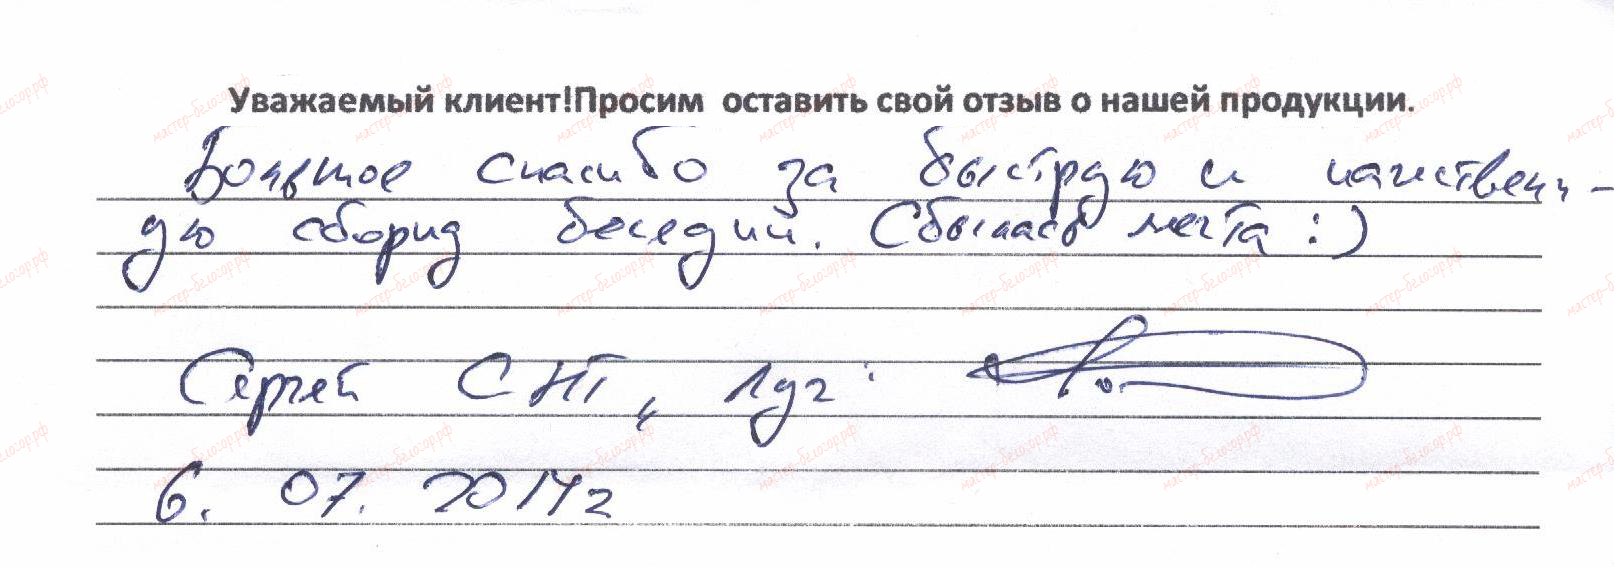 Уважаемый клиент!Просим оставить свой отзыв о нашей продукции.
Большое спасибо за быструю и качествен-
ую сборку беседки. Сбылась мечта :)
Сергей СНТ „Луг“
6. 07. 2014г
мастер-белогор.рф